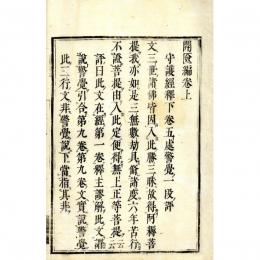 開𠫵編卷上
守護經釋下卷五處警覺一段評
文三世諸佛皆因入此勝三昧故得阿耨菩
提我亦如是三無數劫具修諸度六年苦行
不證菩提由入此定便得無上正等菩提云云
評曰此文在經第一卷釋主謬解此文謂
說警覺引合第九卷第九卷文實說警覺
此三行文非警覺說下當指其非